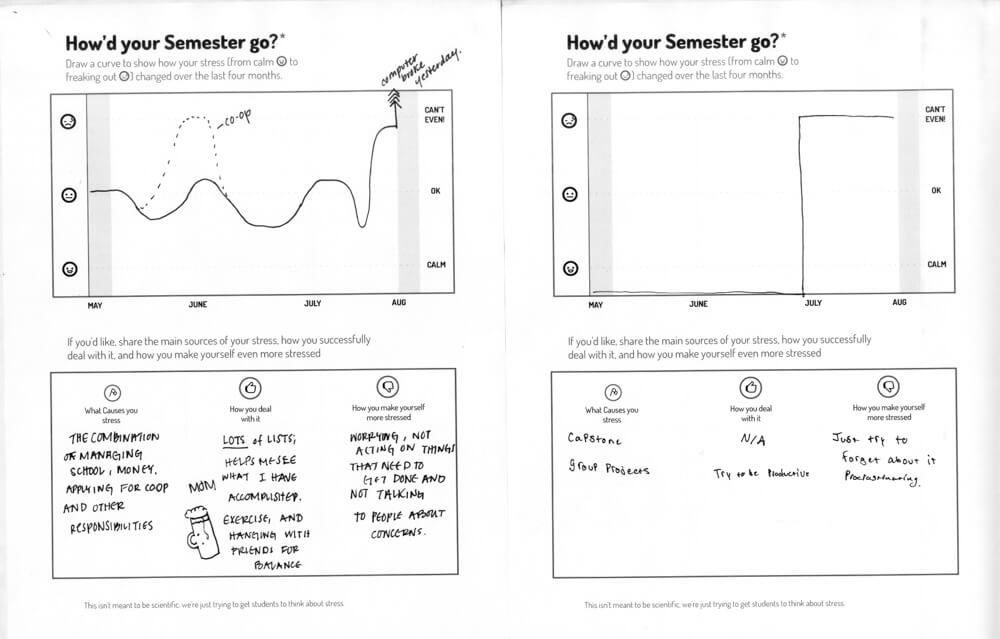 How'd your Semester go?*
Draw a curve to show how your stress (from calm to
freaking out) changed over the last four months.
computer
broke
yesterday.
co-op
CAN'T
EVEN!
OK
CALM
MAY JUNE JULY AUG
If you'd like, share the main sources of your stress, how you successfully
deal with it, and how you make yourself even more stressed
What Causes you
stress
THE COMBINATION
OF MANAGING
SCHOOL, MONEY,
APPLYING FOR COOP
AND OTHER
RESPONSIBILITIES
How you deal
with it
LOTS of LISTS;
HELPS ME SEE
WHAT I HAVE
ACCOMPLISHED.
EXERCISE, AND
HANGING WITH
FRIENDS FOR
BALANCE
MOM
How you make yourself
more stressed
WORRYING, NOT
ACTING ON THINGS
THAT NEED TO
GET DONE AND
NOT TALKING
TO PEOPLE ABOUT
CONCERNS.
This isn't meant to be scientific, we're just trying to get students to think about stress.
How'd your Semester go?*
Draw a curve to show how your stress (from calm to
freaking out) changed over the last four months.
CAN'T
EVEN!
OK
CALM
MAY JUNE JULY AUG
If you'd like, share the main sources of your stress, how you successfully
deal with it, and how you make yourself even more stressed
What Causes you
stress
Capstone
Group Projects
How you deal
with it
N/A
Try to be Productive
How you make yourself
more stressed
Just try to
forget about it
This isn't meant to be scientific, we're just trying to get students to think about stress.